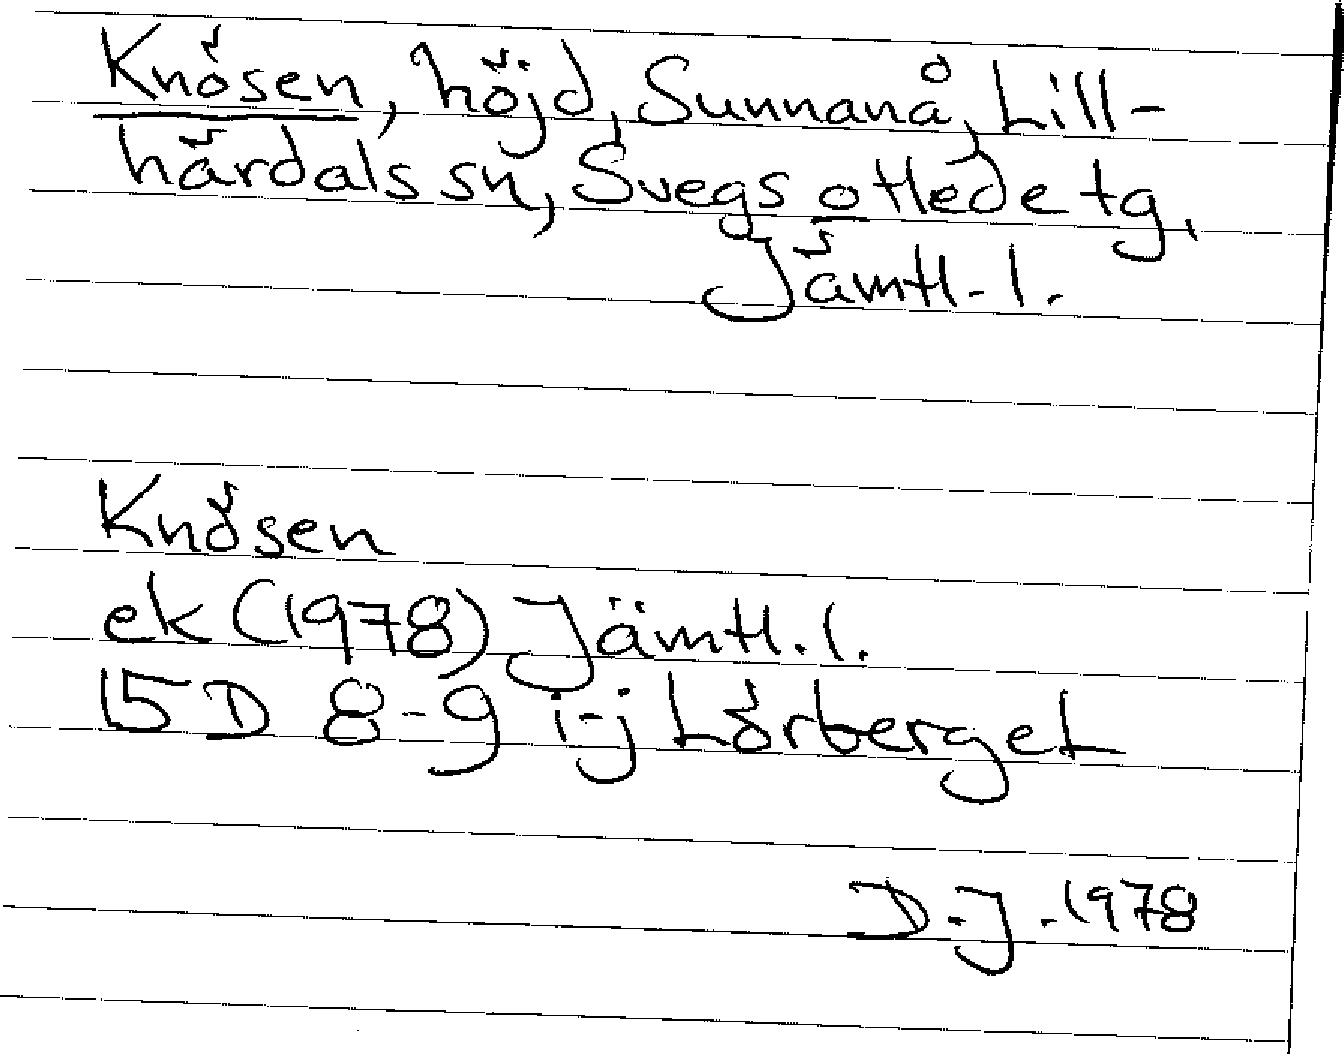 Knösen, höjd, Sunnanå, Lill-
härdals sn, Svegs o Hede tg,
Jämtl. l.
Knösen
ek (1978) Jämtl. l.
15 D 8-9 i-j Lörberget
D. J. 1978